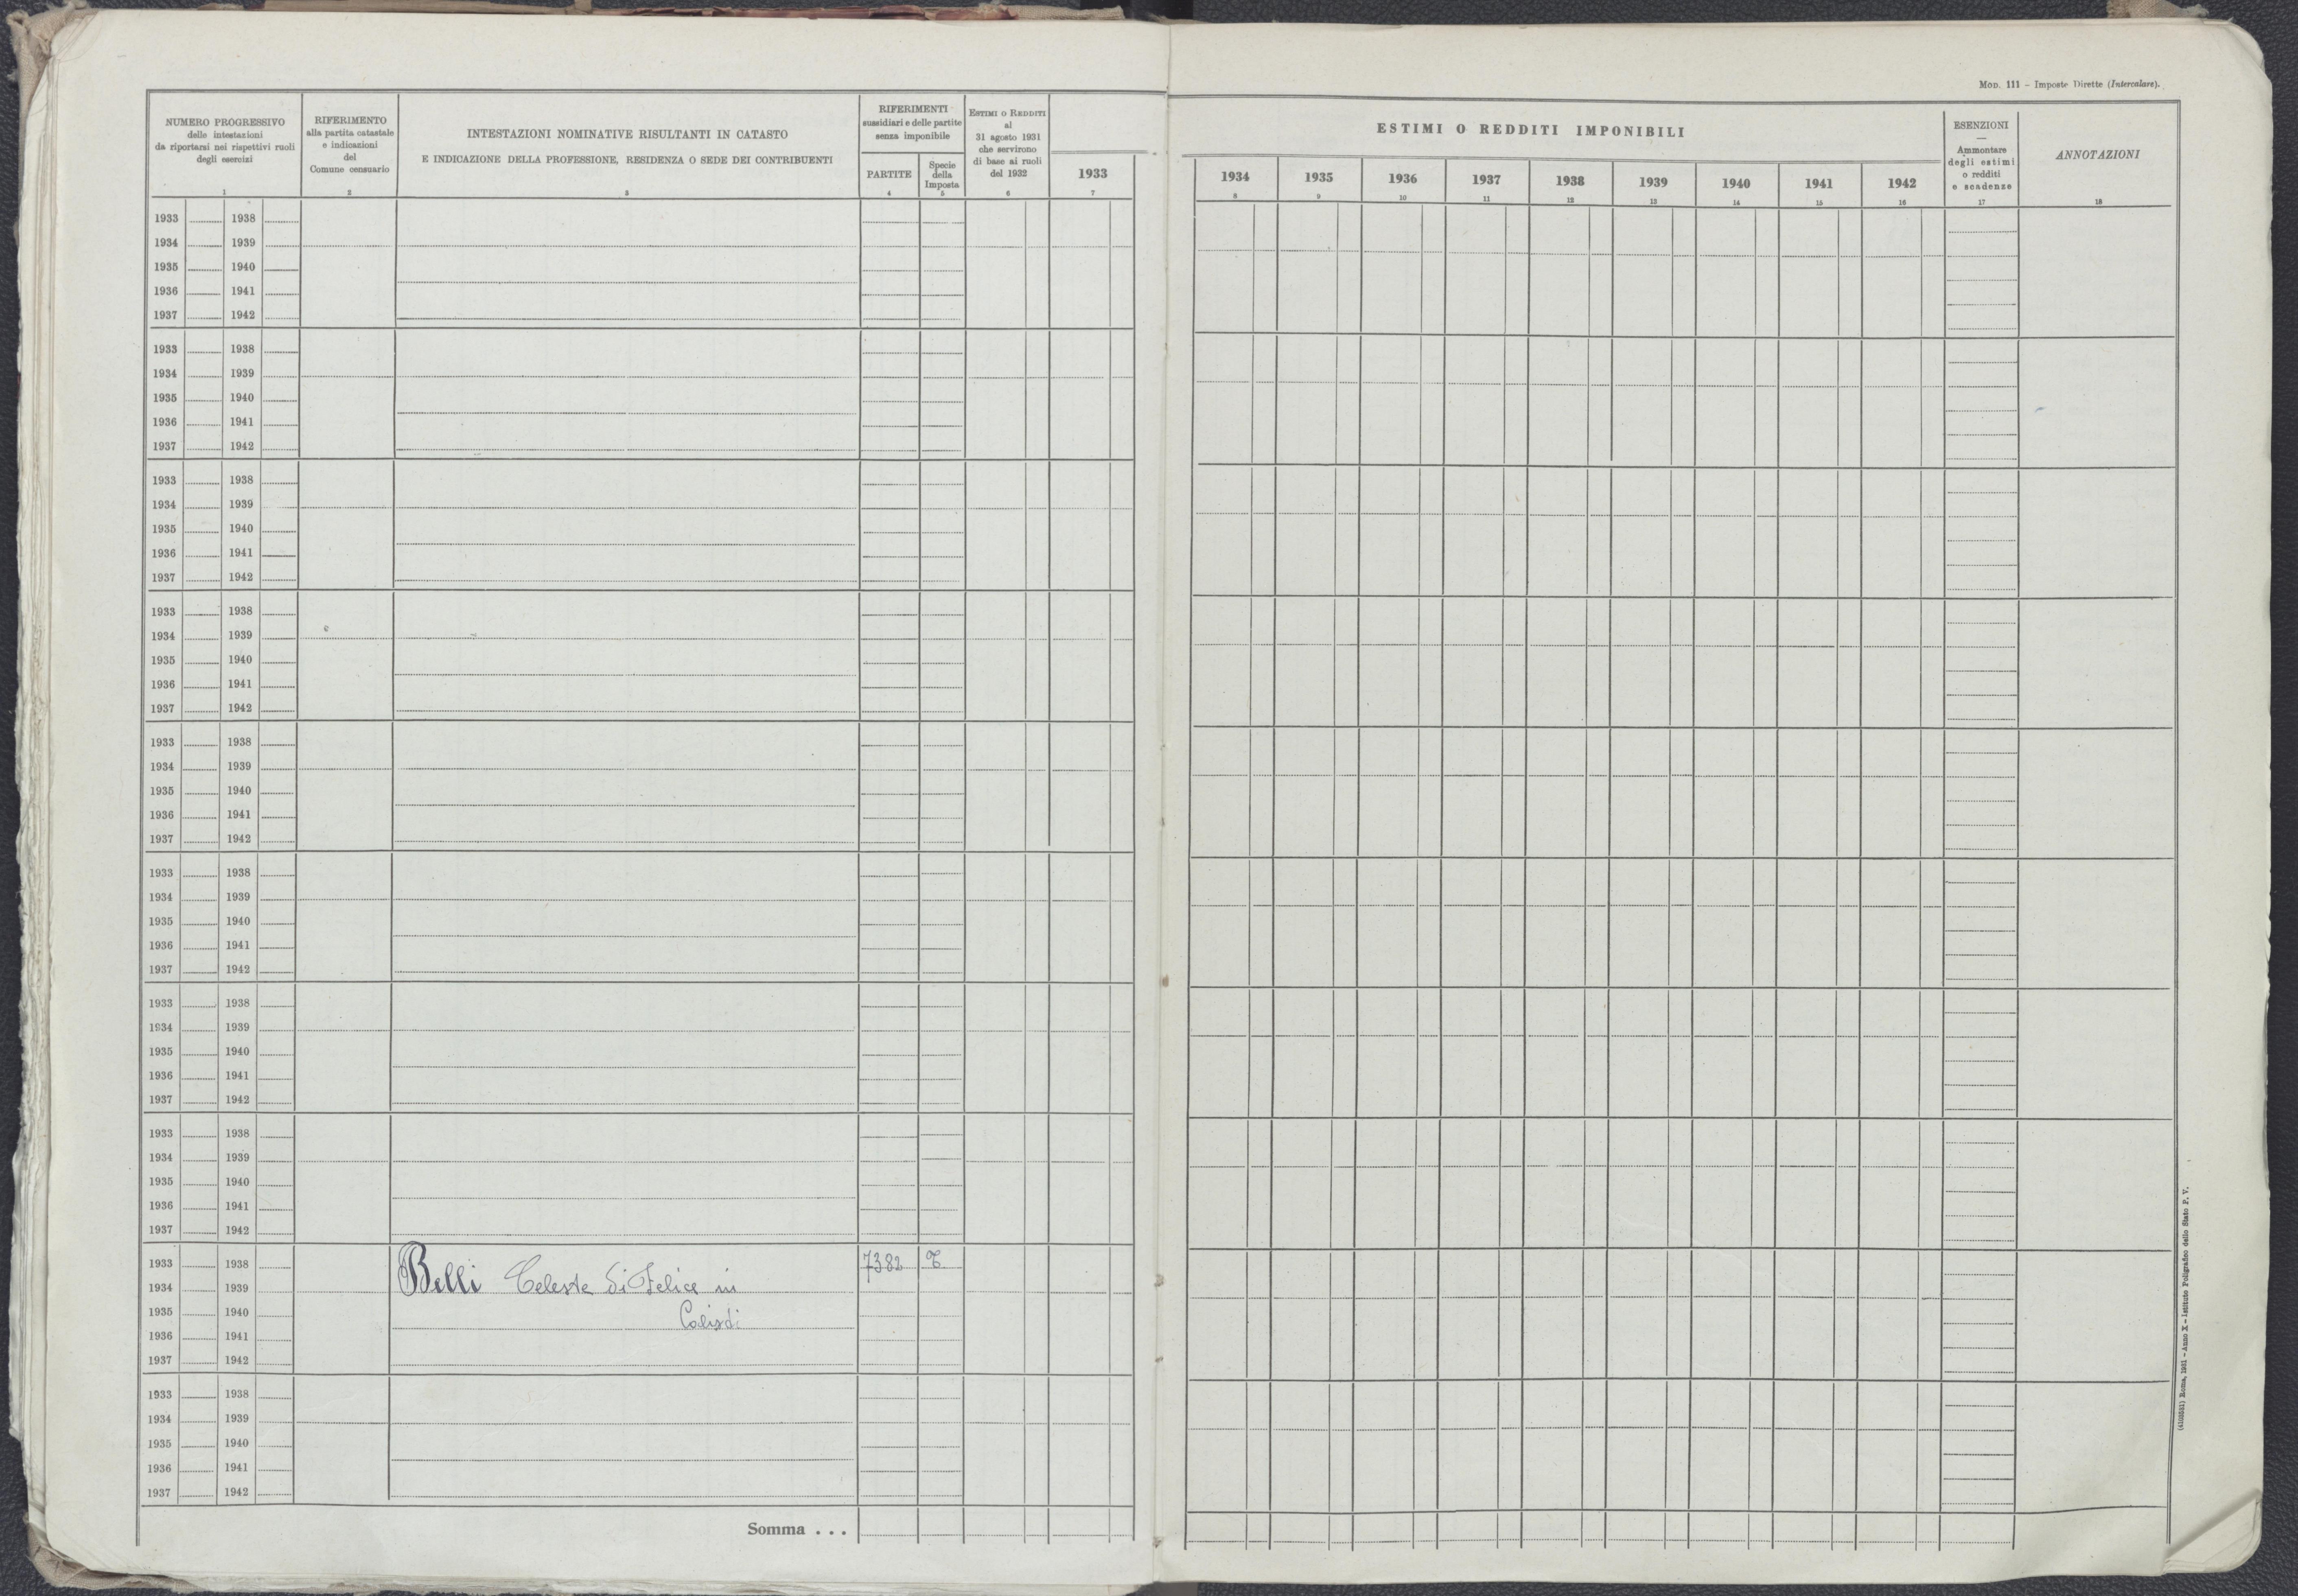 Mod. 111 - Imposte Dirette (Intercalare).
NUMERO PROGRESSIVO
delle intestazioni
da riportarsi nei rispettivi ruoli
degli esercizi
1
RIFERIMENTO
alla partita catastale
e indicazioni
del
Comune censuario
2
INTESTAZIONI NOMINATIVE RISULTANTI IN CATASTO
E INDICAZIONE DELLA PROFESSIONE, RESIDENZA O SEDE DEI CONTRIBUENTI
3
RIFERIMENTI
sussidiari e delle partite
senza imponibile
PARTITE
4
Specie
della
Imposta
5
ESTIMI O REDDITI
al
31 agosto 1931
che servirono
di base ai ruoli
del 1932
6
1933
7
ESTIMI O REDDITI IMPONIBILI
1934 1935 1936 1937 1938 1939 1940 1941 1942
8 9 10 11 12 13 14 15 16
ESENZIONI
—
Ammontare
degli estimi
o redditi
e scadenze
17
ANNOTAZIONI
18
1933 1938
1934 1939
1935 1940
1936 1941
1937 1942
1933 1938
1934 1939
1935 1940
1936 1941
1937 1942
1933 1938
1934 1939
1935 1940
1936 1941
1937 1942
1933 1938
1934 1939
1935 1940
1936 1941
1937 1942
1933 1938
1934 1939
1935 1940
1936 1941
1937 1942
1933 1938
1934 1939
1935 1940
1936 1941
1937 1942
1933 1938
1934 1939
1935 1940
1936 1941
1937 1942
1933 1938
1934 1939
1935 1940
1936 1941
1937 1942
1933 1938 7382 T
1934 1939 Belli Celeste di Felice in
1935 1940
1936 1941
1937 1942
1933 1938
1934 1939
1935 1940
1936 1941
1937 1942
Somma . . .
(4103531) Roma, 1931 - Anno X - Istituto Poligrafico dello Stato P. V.